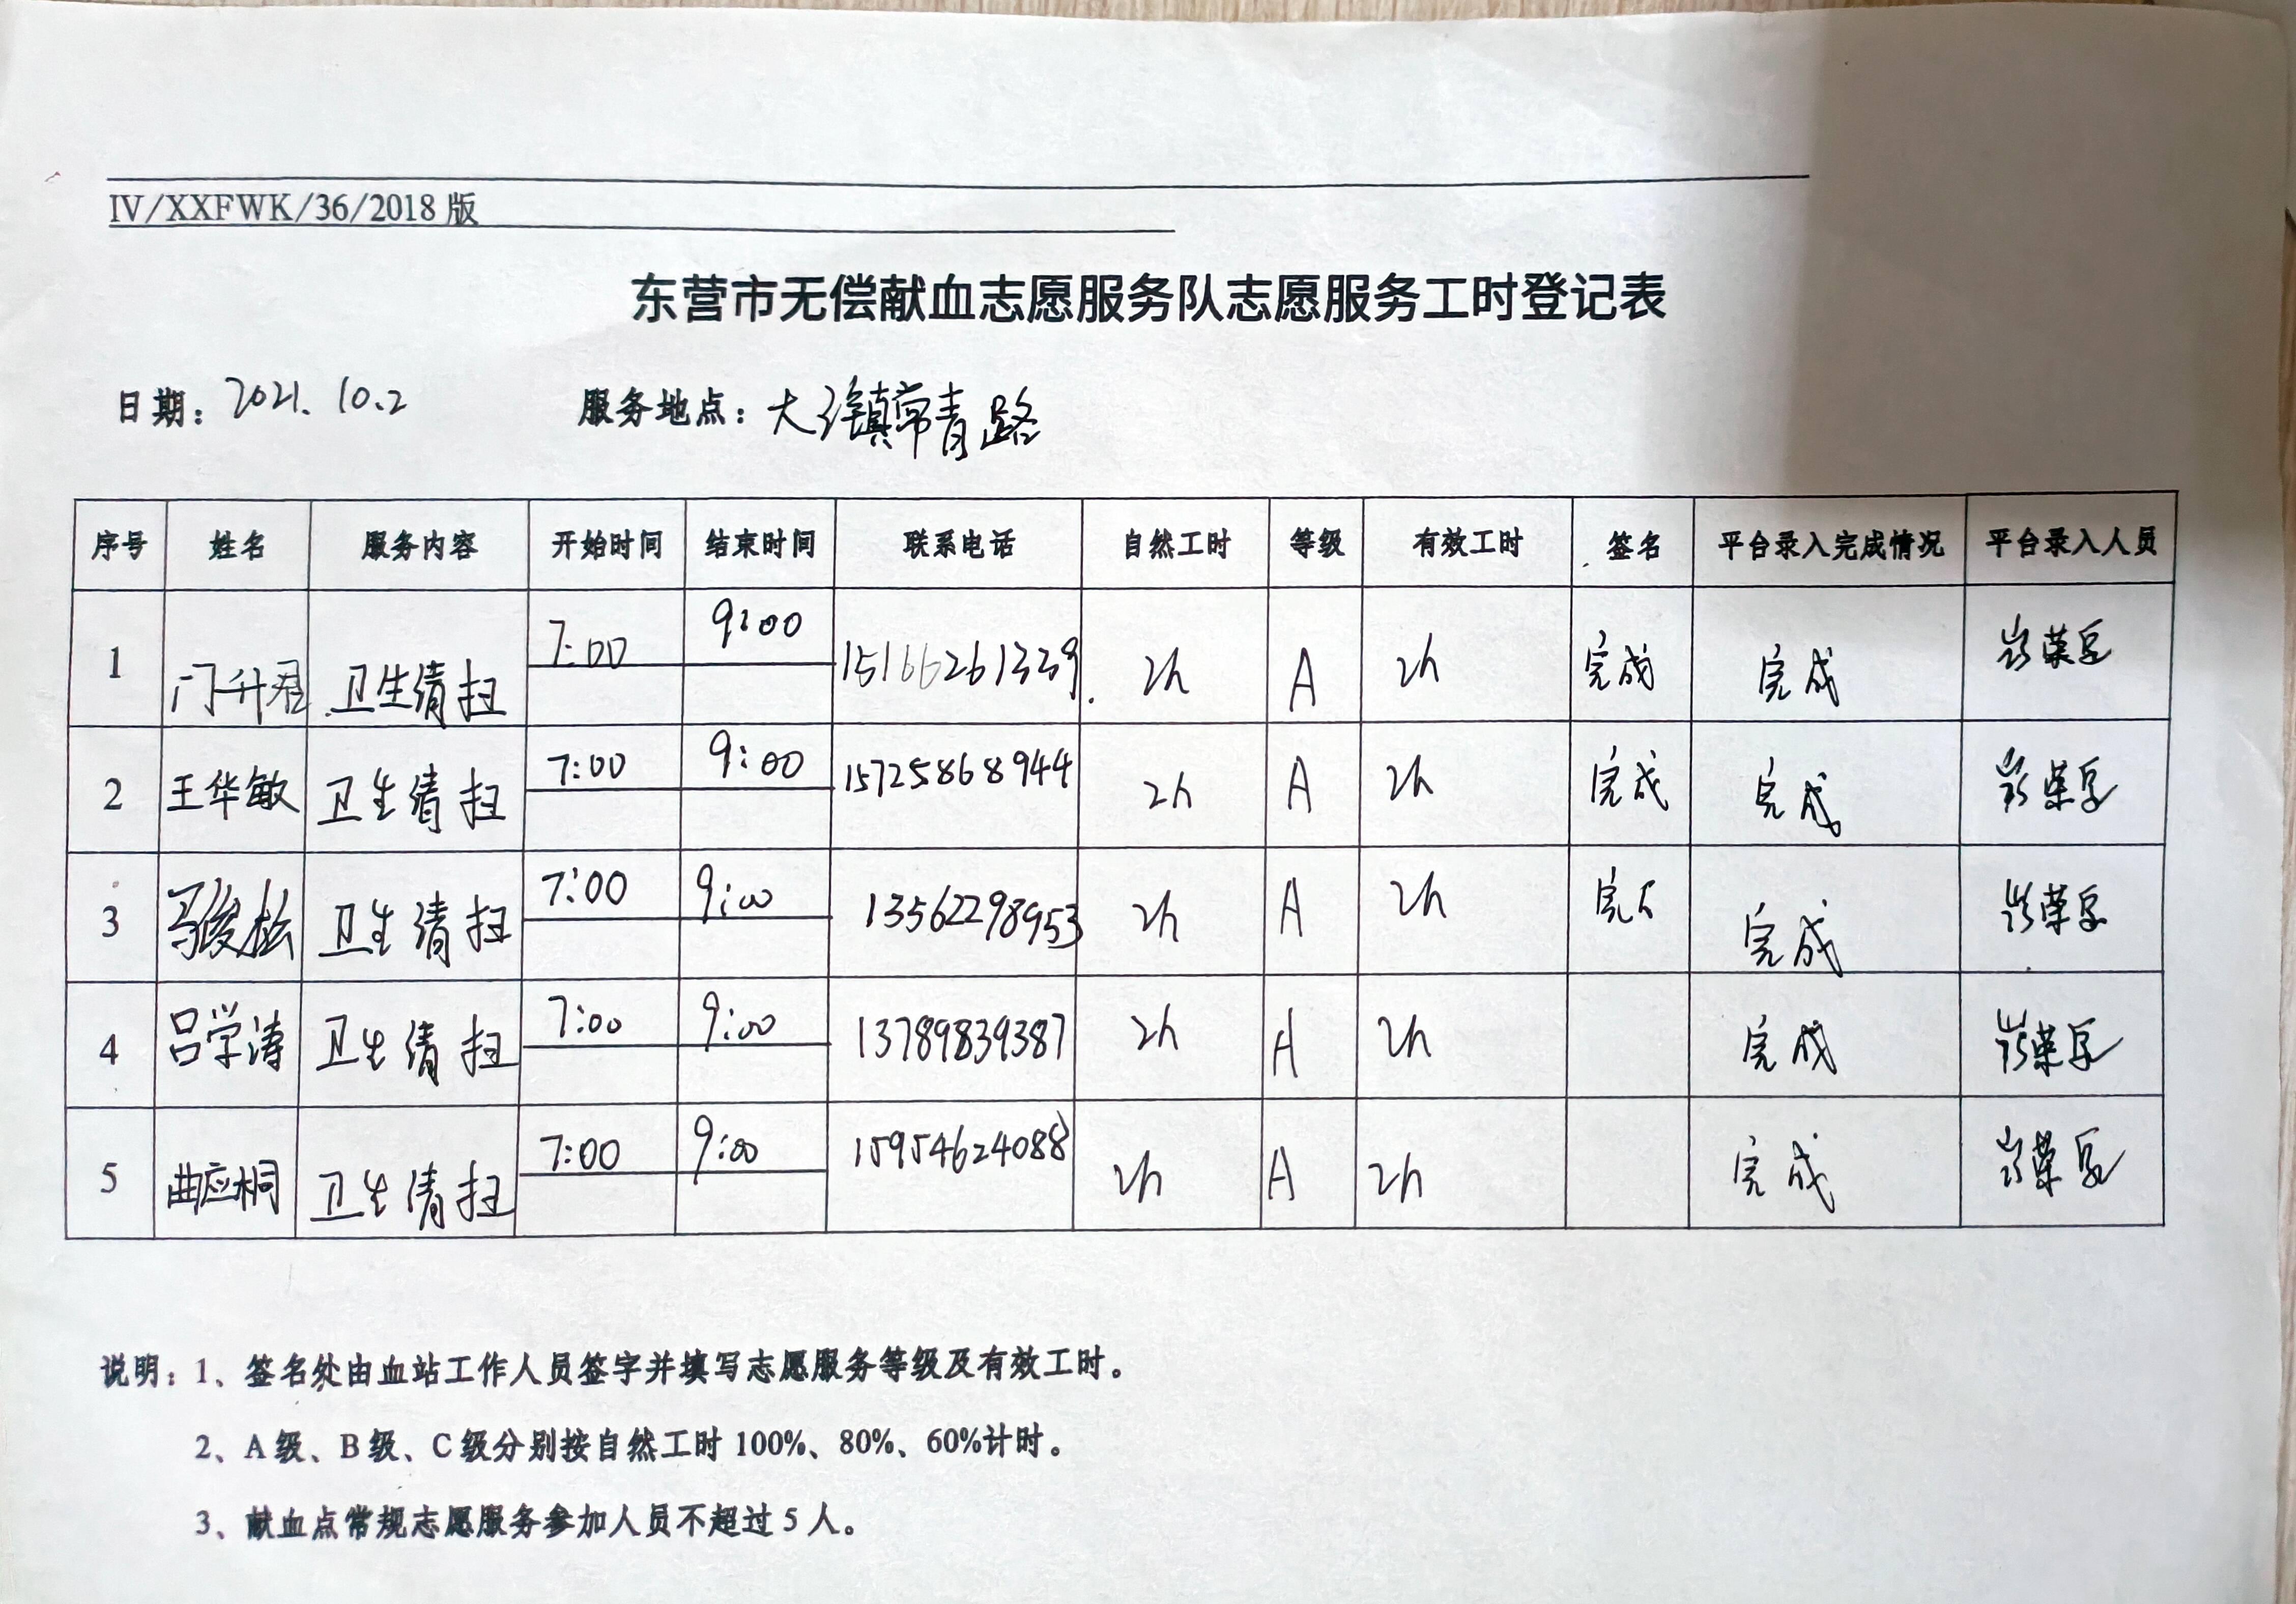 IV/XXFWK/36/2018 版
东营市无偿献血志愿服务队志愿服务工时登记表
日期: 2021.10.2 服务地点: 大 镇常青路
序号 姓名 服务内容 开始时间 结束时间 联系电话 自然工时 等级 有效工时 签名 平台录入完成情况 平台录入人员
1 门升君 卫生清扫 7:00 9:00 15166261339 2h A 2h 完成 完成
2 王华敏 卫生清扫 7:00 9:00 15725868944 2h A 2h 完成 完成
3 马俊松 卫生清扫 7:00 9:00 13562298953 2h A 2h 完 完成
4 吕学涛 卫生清扫 7:00 9:00 13789839387 2h A 2h 完成
5 曲应桐 卫生清扫 7:00 9:00 15954624088 2h A 2h 完成
说明: 1、签名处由血站工作人员签字并填写志愿服务等级及有效工时。
2、A 级、B 级、C 级分别按自然工时 100%、80%、60%计时。
3、献血点常规志愿服务参加人员不超过 5 人。